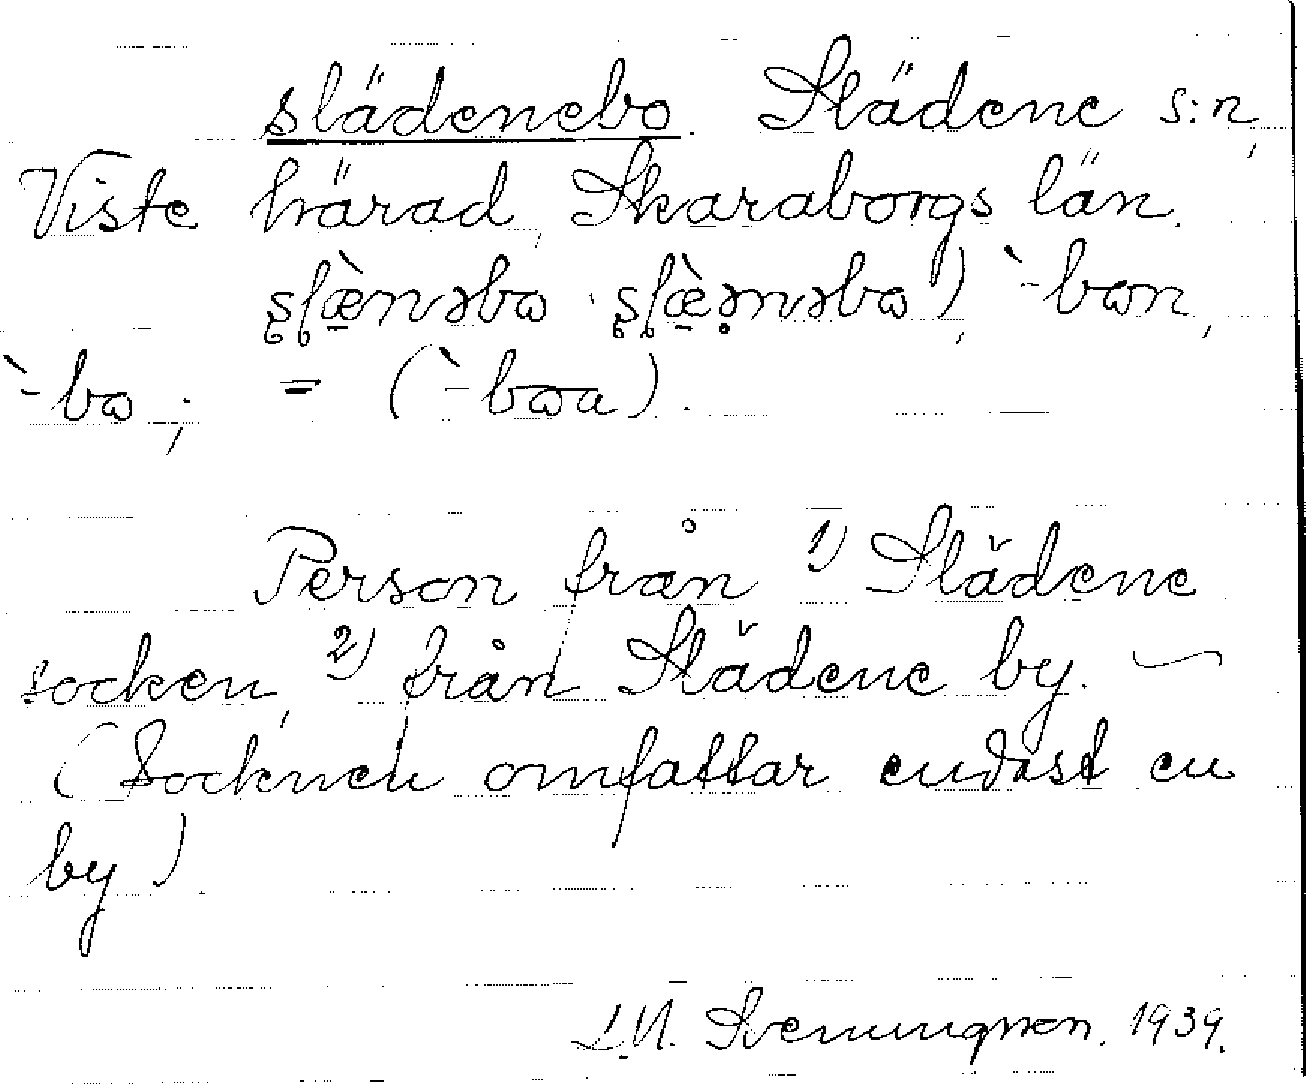 slädenebo. Slädene s:n,
Viste härad, Skaraborgs län.
-bɷn,
-bɷ; = (-bɷa).
Person från 1) Slädene
socken, 2) från Slädene by. —
(Socknen omfattar endast en
by).
Svenungsson. 1939.